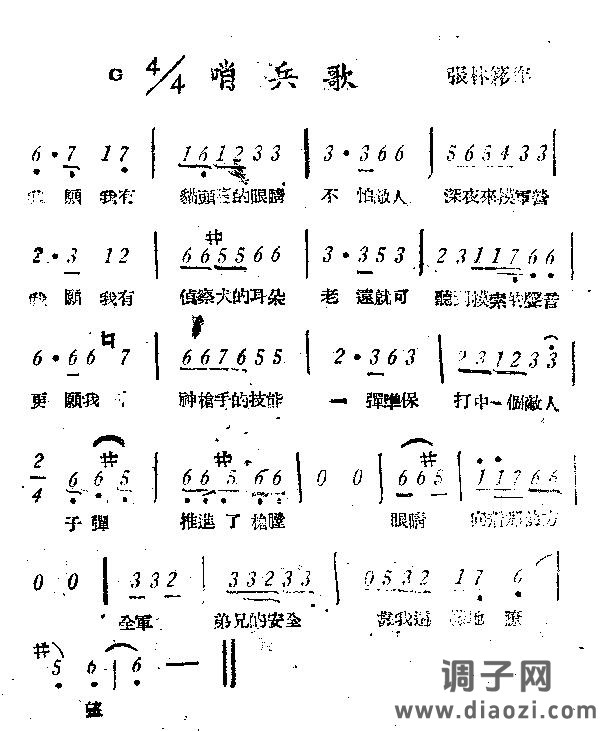 G 4/4 哨兵歌 張林
6·7 17 | 161233 | 3·366 | 565433
我願我有 貓頭的眼睛 不怕敵人 深夜來摸軍營
2·3 12 | 66#5566 | 3·353 | 2311766
我願我有 偵察犬的耳朵 老遠就可 聽到摸索的聲音
6·66♮7 | 667655 | 2·363 | 231233
更願我有 神槍手的技能 一彈準保 打中一個敵人
2/4 66#5 | 66#566 | 0 0 | 66#5 | 11766
子彈 推進了槍膛 眼睛 方
0 0 | 332 | 33233 | 0532 17 6
全軍 弟兄的安全 我 地瞭
#5 6 6 —
望
调子网
www.diaozi.com